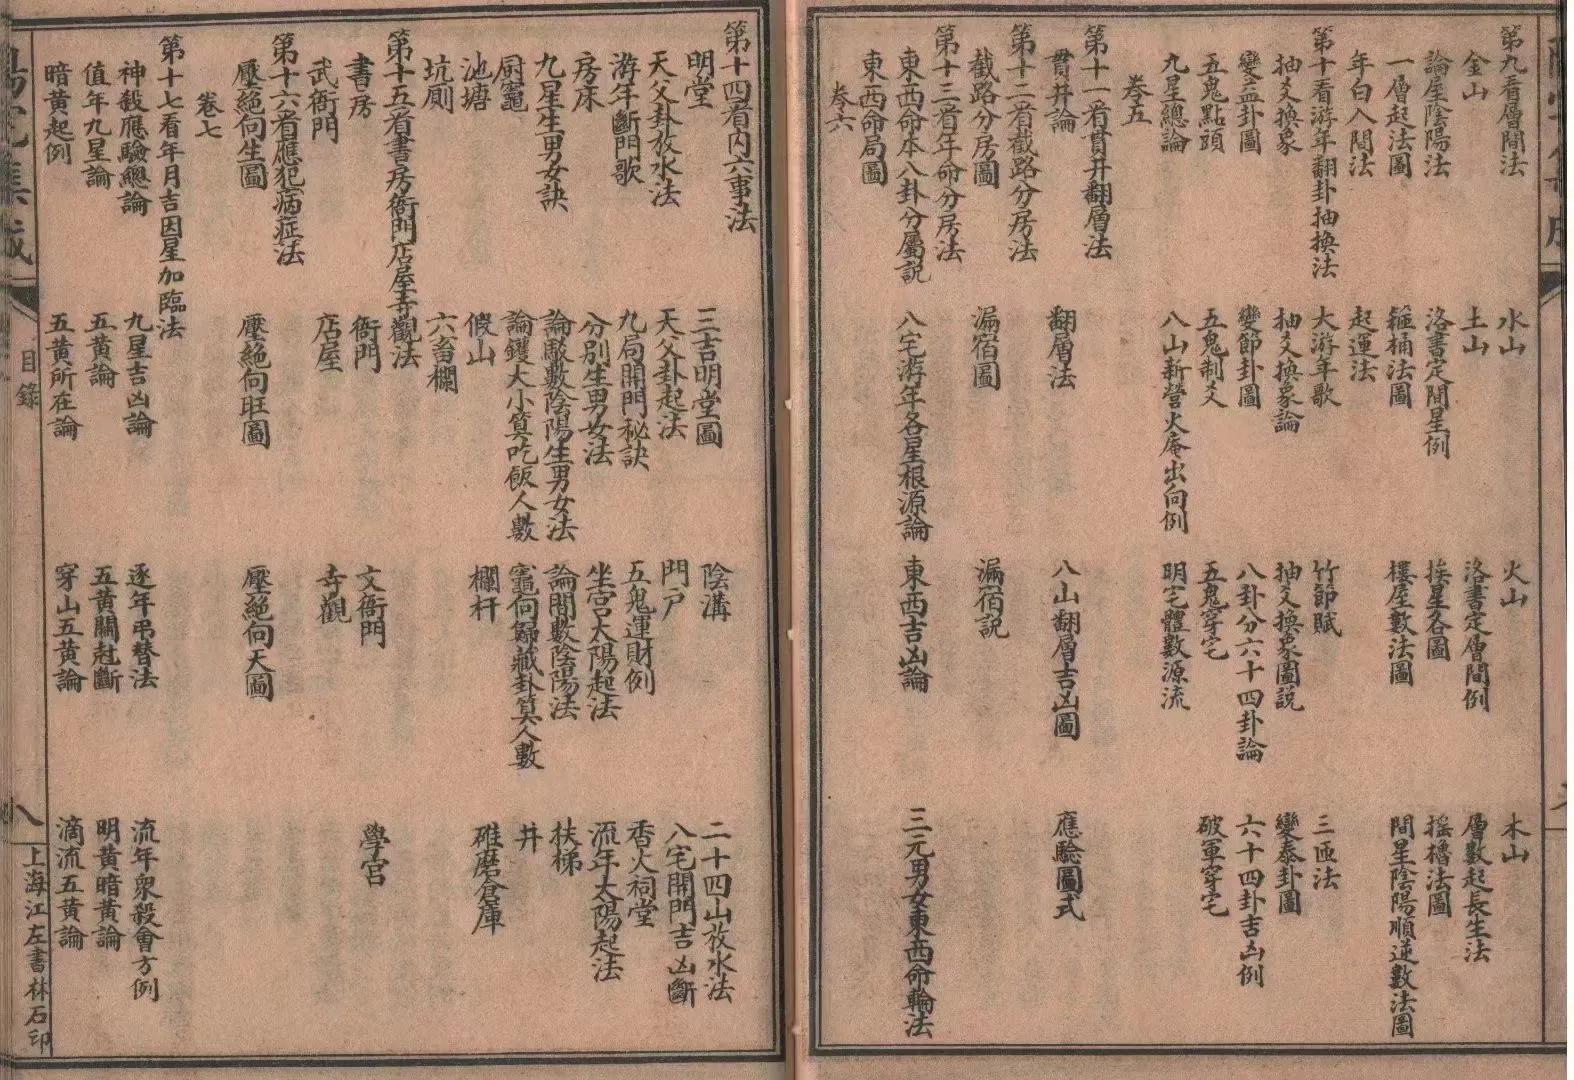 第九看層間法 水山 火山 木山
金山 土山 洛書定層間例 層數起長生法
論星陰陽法 洛書定間星例 挨星各圖 搖櫓法圖
一層起法圖 箍桶法圖 樓屋數法圖 間星陰陽順逆數法圖
年白入間法 起運法
第十看游年翻卦抽換法 大游年歌 竹節賦 三匝法
抽爻換象 抽爻換象論 抽爻換象圖説 變泰卦圖
變益卦圖 變節卦圖 八卦分六十四卦論 六十四卦吉凶例
五鬼點頭 五鬼制爻 五鬼穿宅 破軍穿宅
九星總論 八山新營火庵出向例 明宅體數源流
卷五
第十一看貫井翻層法
貫井論 翻層法 八山翻層吉凶圖 應驗圖式
第十二看截路分房法
截路分房圖 漏宿圖 漏宿説
第十三看年命分房法
東西命本八卦分屬説 八宅游年各星根源論 東西吉凶論 三元男女東西命輪法
東西命局圖
卷六
第十四看内六事法
明堂 三吉明堂圖 陰溝 二十四山放水法
天父卦放水法 天父卦起法 門戸 八宅開門吉凶斷
游年斷門歌 九局開門秘訣 五鬼運財例 香火祠堂
房床 分別生男女法 坐宫太陽起法 流年太陽起法
九星生男女訣 論駁數陰陽生男女法 論閣數陰陽法 扶梯
厨竈 論鑊大小算吃飯人數 竈向歸藏卦算人數 井
池塘 假山 欄杆 碓磨倉庫
坑厠 六畜欄
第十五看書房衙門店屋寺觀法
書房 衙門 文衙門 學宫
武衙門 店屋 寺觀
第十六看應犯病症法
壓絶向生圖 壓絶向旺圖 壓絶向天圖
卷七
第十七看年月吉凶星加臨法
神殺應驗總論 九星吉凶論 逐年弔替法 流年衆殺會方例
值年九星論 五黄論 五黄關尅斷 明黄暗黄論
暗黄起例 五黄所在論 穿山五黄論 滴流五黄論
陽宅集成 目錄 八 上海江左書林石印